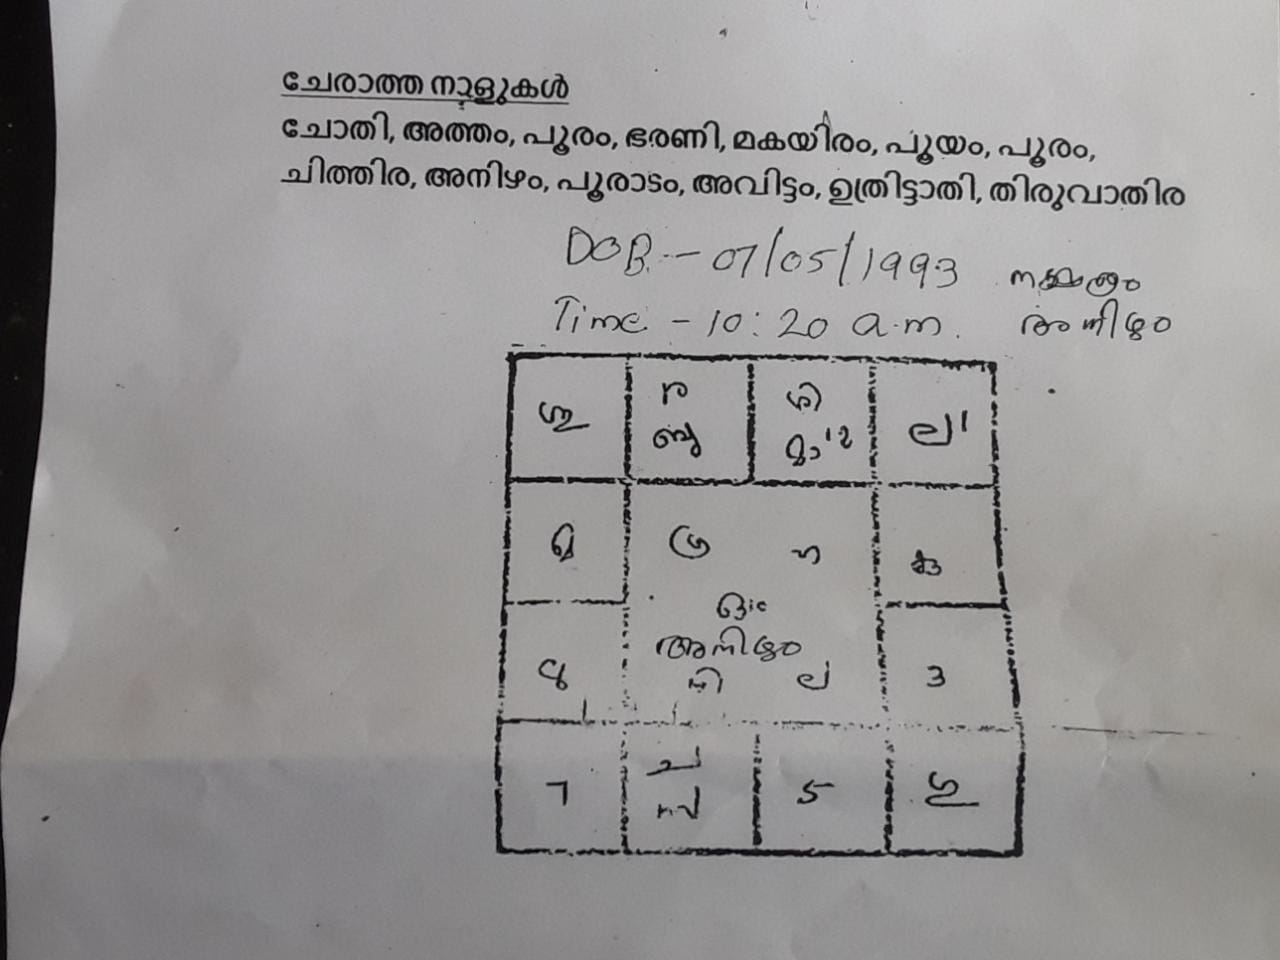 ചേരാത്ത നാളുകൾ
ചോതി, അത്തം, പൂരം, ഭരണി, മകയിരം, പൂയം, പൂരം,
ചിത്തിര, അനിഴം, പൂരാടം, അവിട്ടം, ഉത്രിട്ടാതി, തിരുവാതിര
DOB - 07/05/1993 നക്ഷത്രം
Time - 10:20 a.m. അനിഴം
ശു
ര
ബു
ശി
മാ
ല
ഗ്ര ഹ
കു
അനിഴം
നി ല